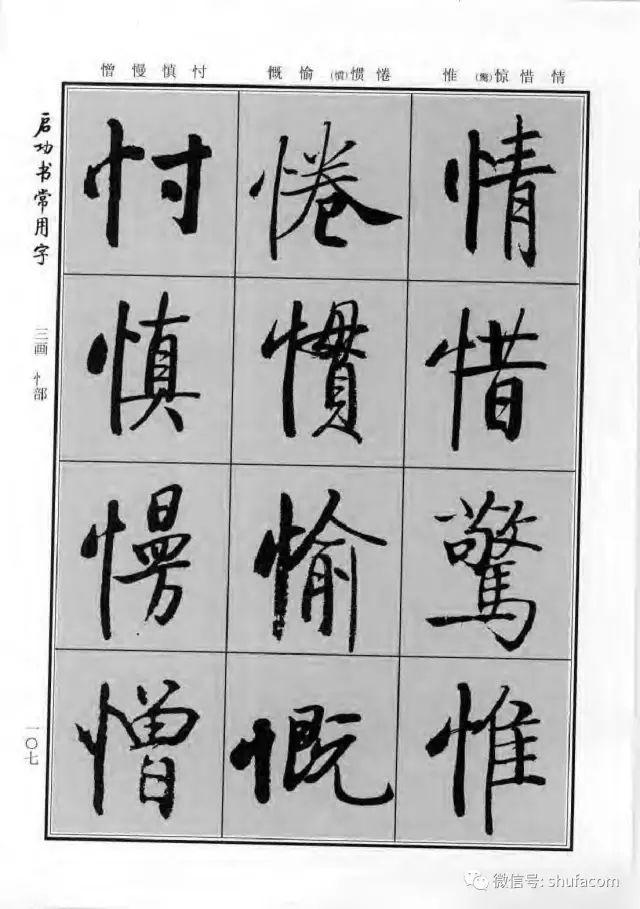 情惜惊(驚)惟
惓惯(慣)愉慨
忖慎慢憎
情
惜
驚
惟
惓
慣
愉
慨
忖
慎
慢
憎
启功书常用字
三画 忄部
一〇七
微信号: shufacom